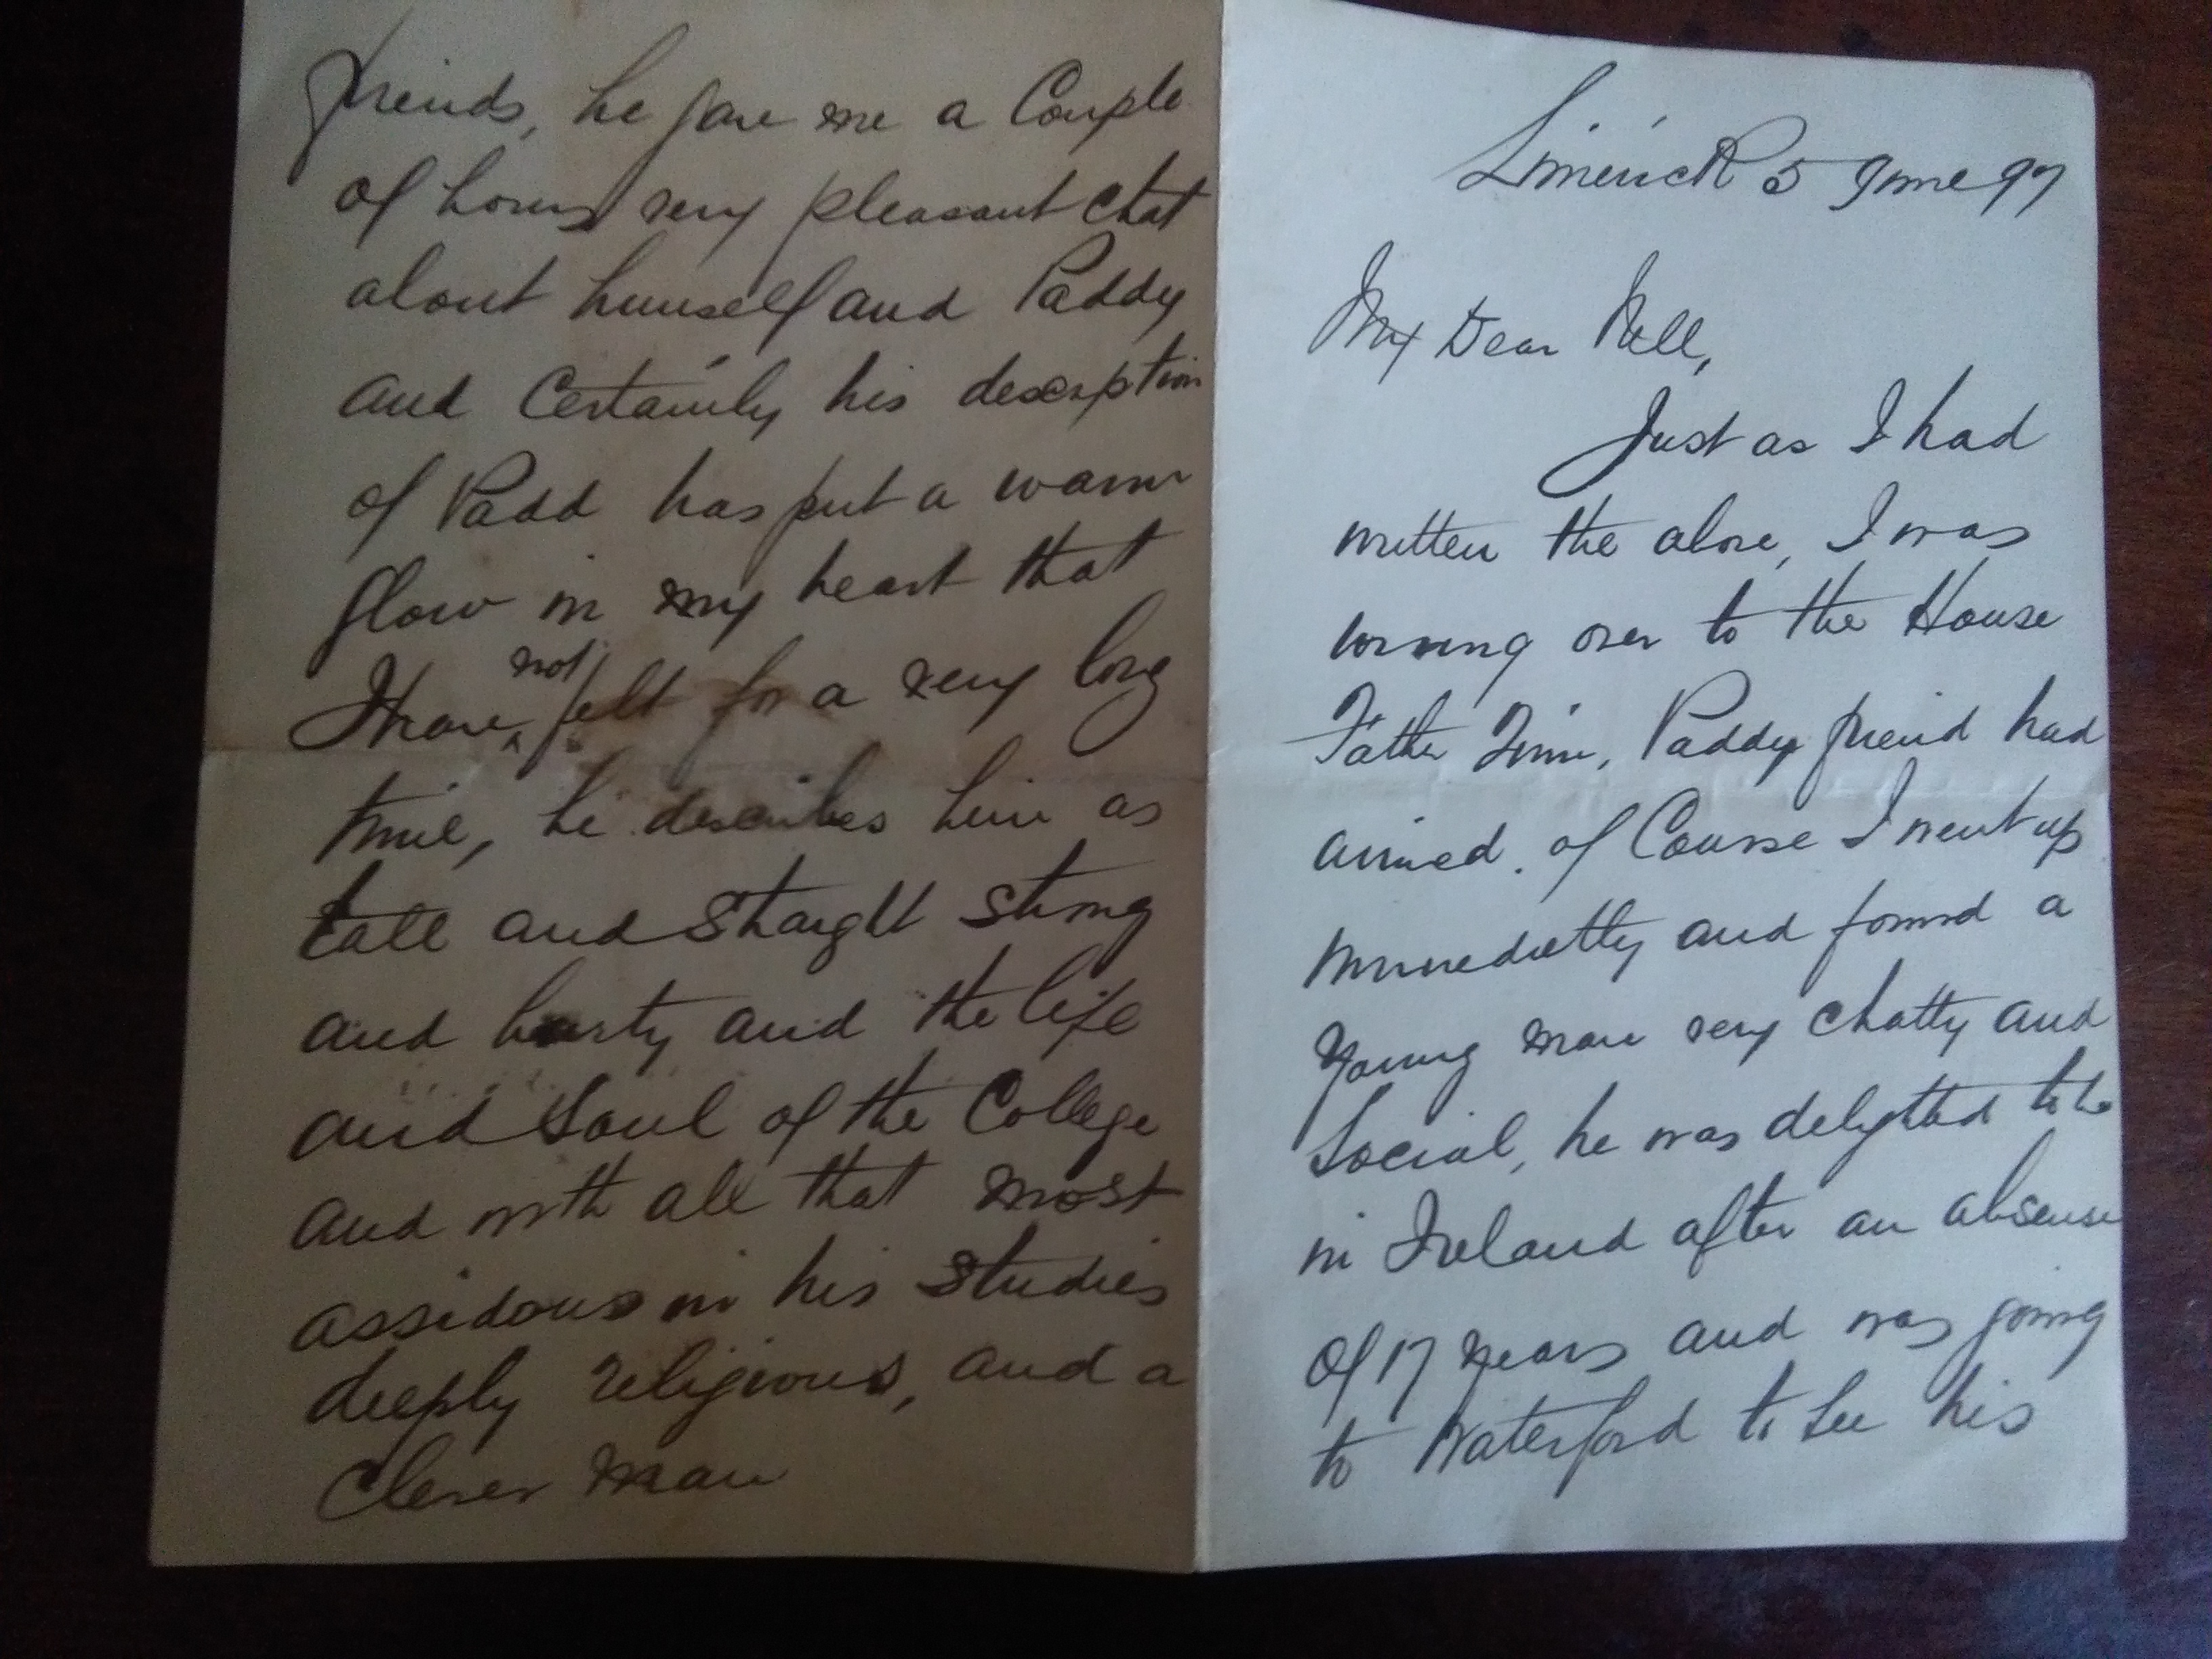 Limerick 5 June 97
My Dear Nell,
Just as I had
written the above, I was
over to the House
Father Finn, Paddy friend had
arrived. of Course I went up
immedietly and found a
young man very chatty and
Social, he was delighted to be
in Ireland after an absense
of 17 years and was going
to Waterford to See his
friends, he gave me a Couple
of hours very pleasant chat
about himself and Paddy
and Certainly his description
of Padd has put a warm
glow in my heart that
I have not felt for a very long
time, he describes him as
tall and Staight strong
and harty and the life
and Soul of the College
and with all that most
assidous in his Studies
deeply religious, and a
Clever man